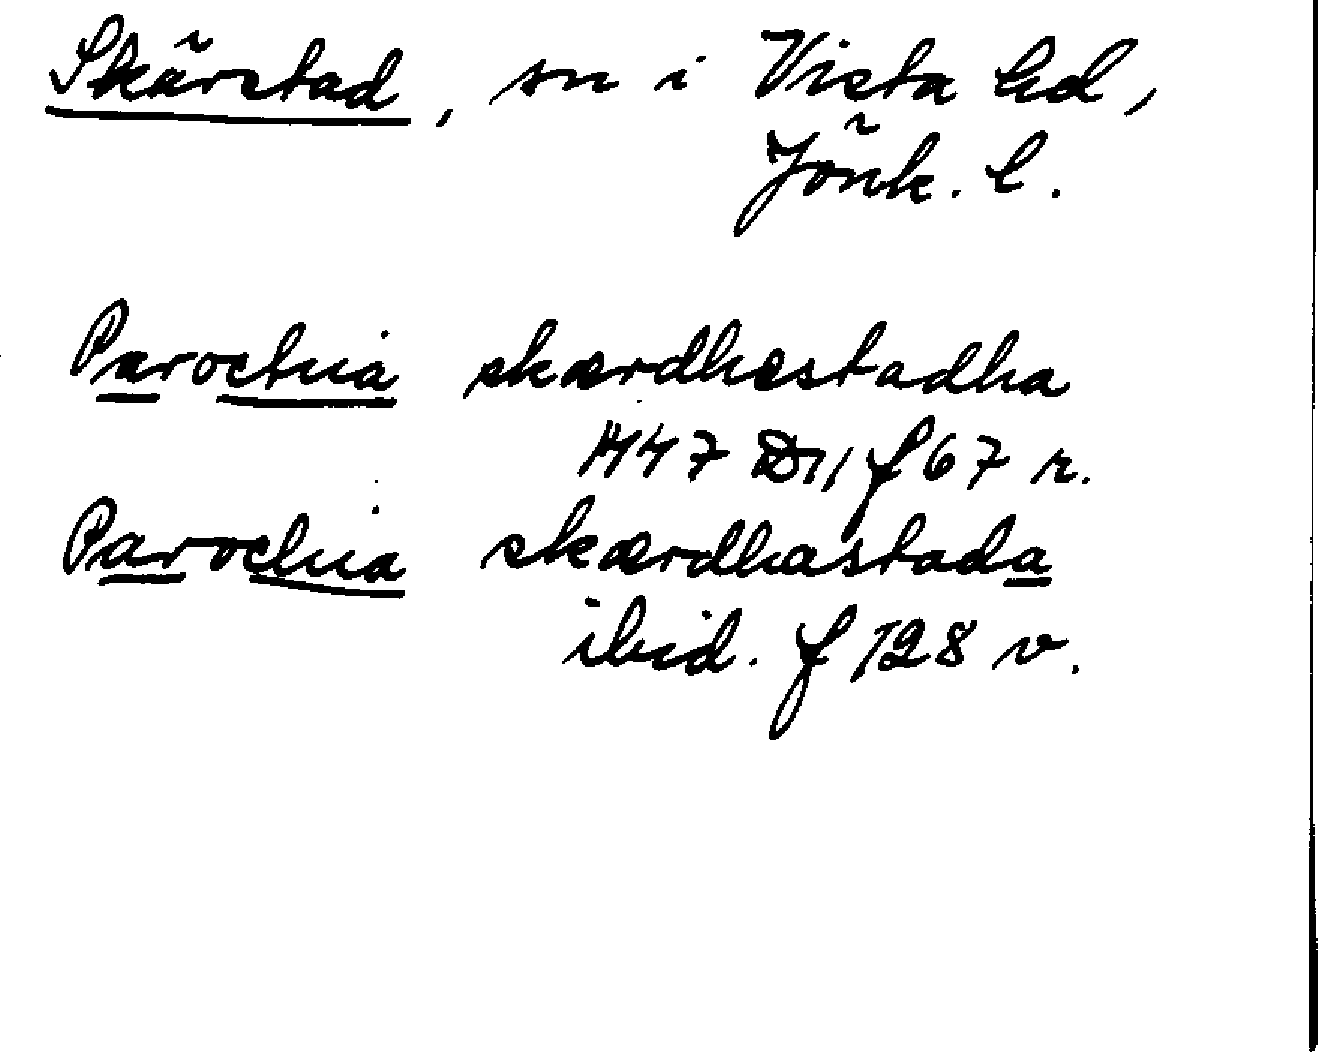 Skärstad, sn i Vista hd,
Jönk. l.
Parochia skærdhæstadha
1447 D11 f 67 r.
Parochia skærdhastada
ibid. f 128 v.